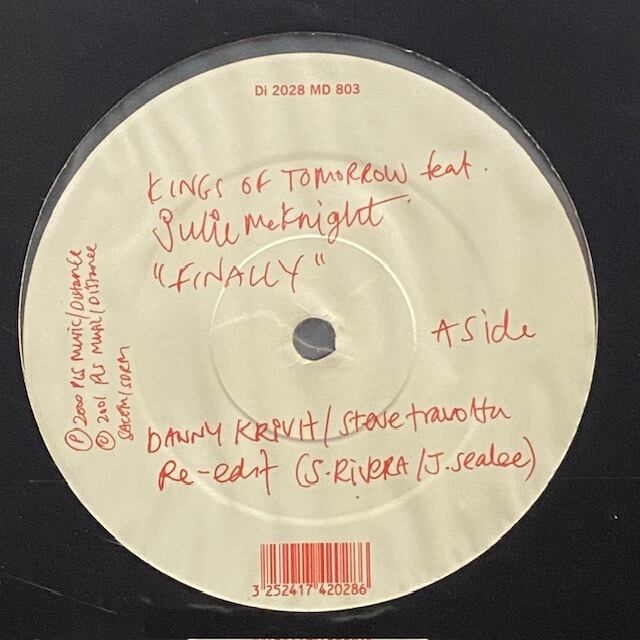 Di 2028 MD 803
KINGS OF TOMORROW feat.
Julie McKnight
"FINALLY"
A Side
Ⓟ 2000 PLS Music/Distance
© 2001 PLS Music/Distance
SACEM/SDRM
DANNY KRIVIT/Steve travolta
Re-edit (S.RIVERA/J.sealee)
3 252417 420286